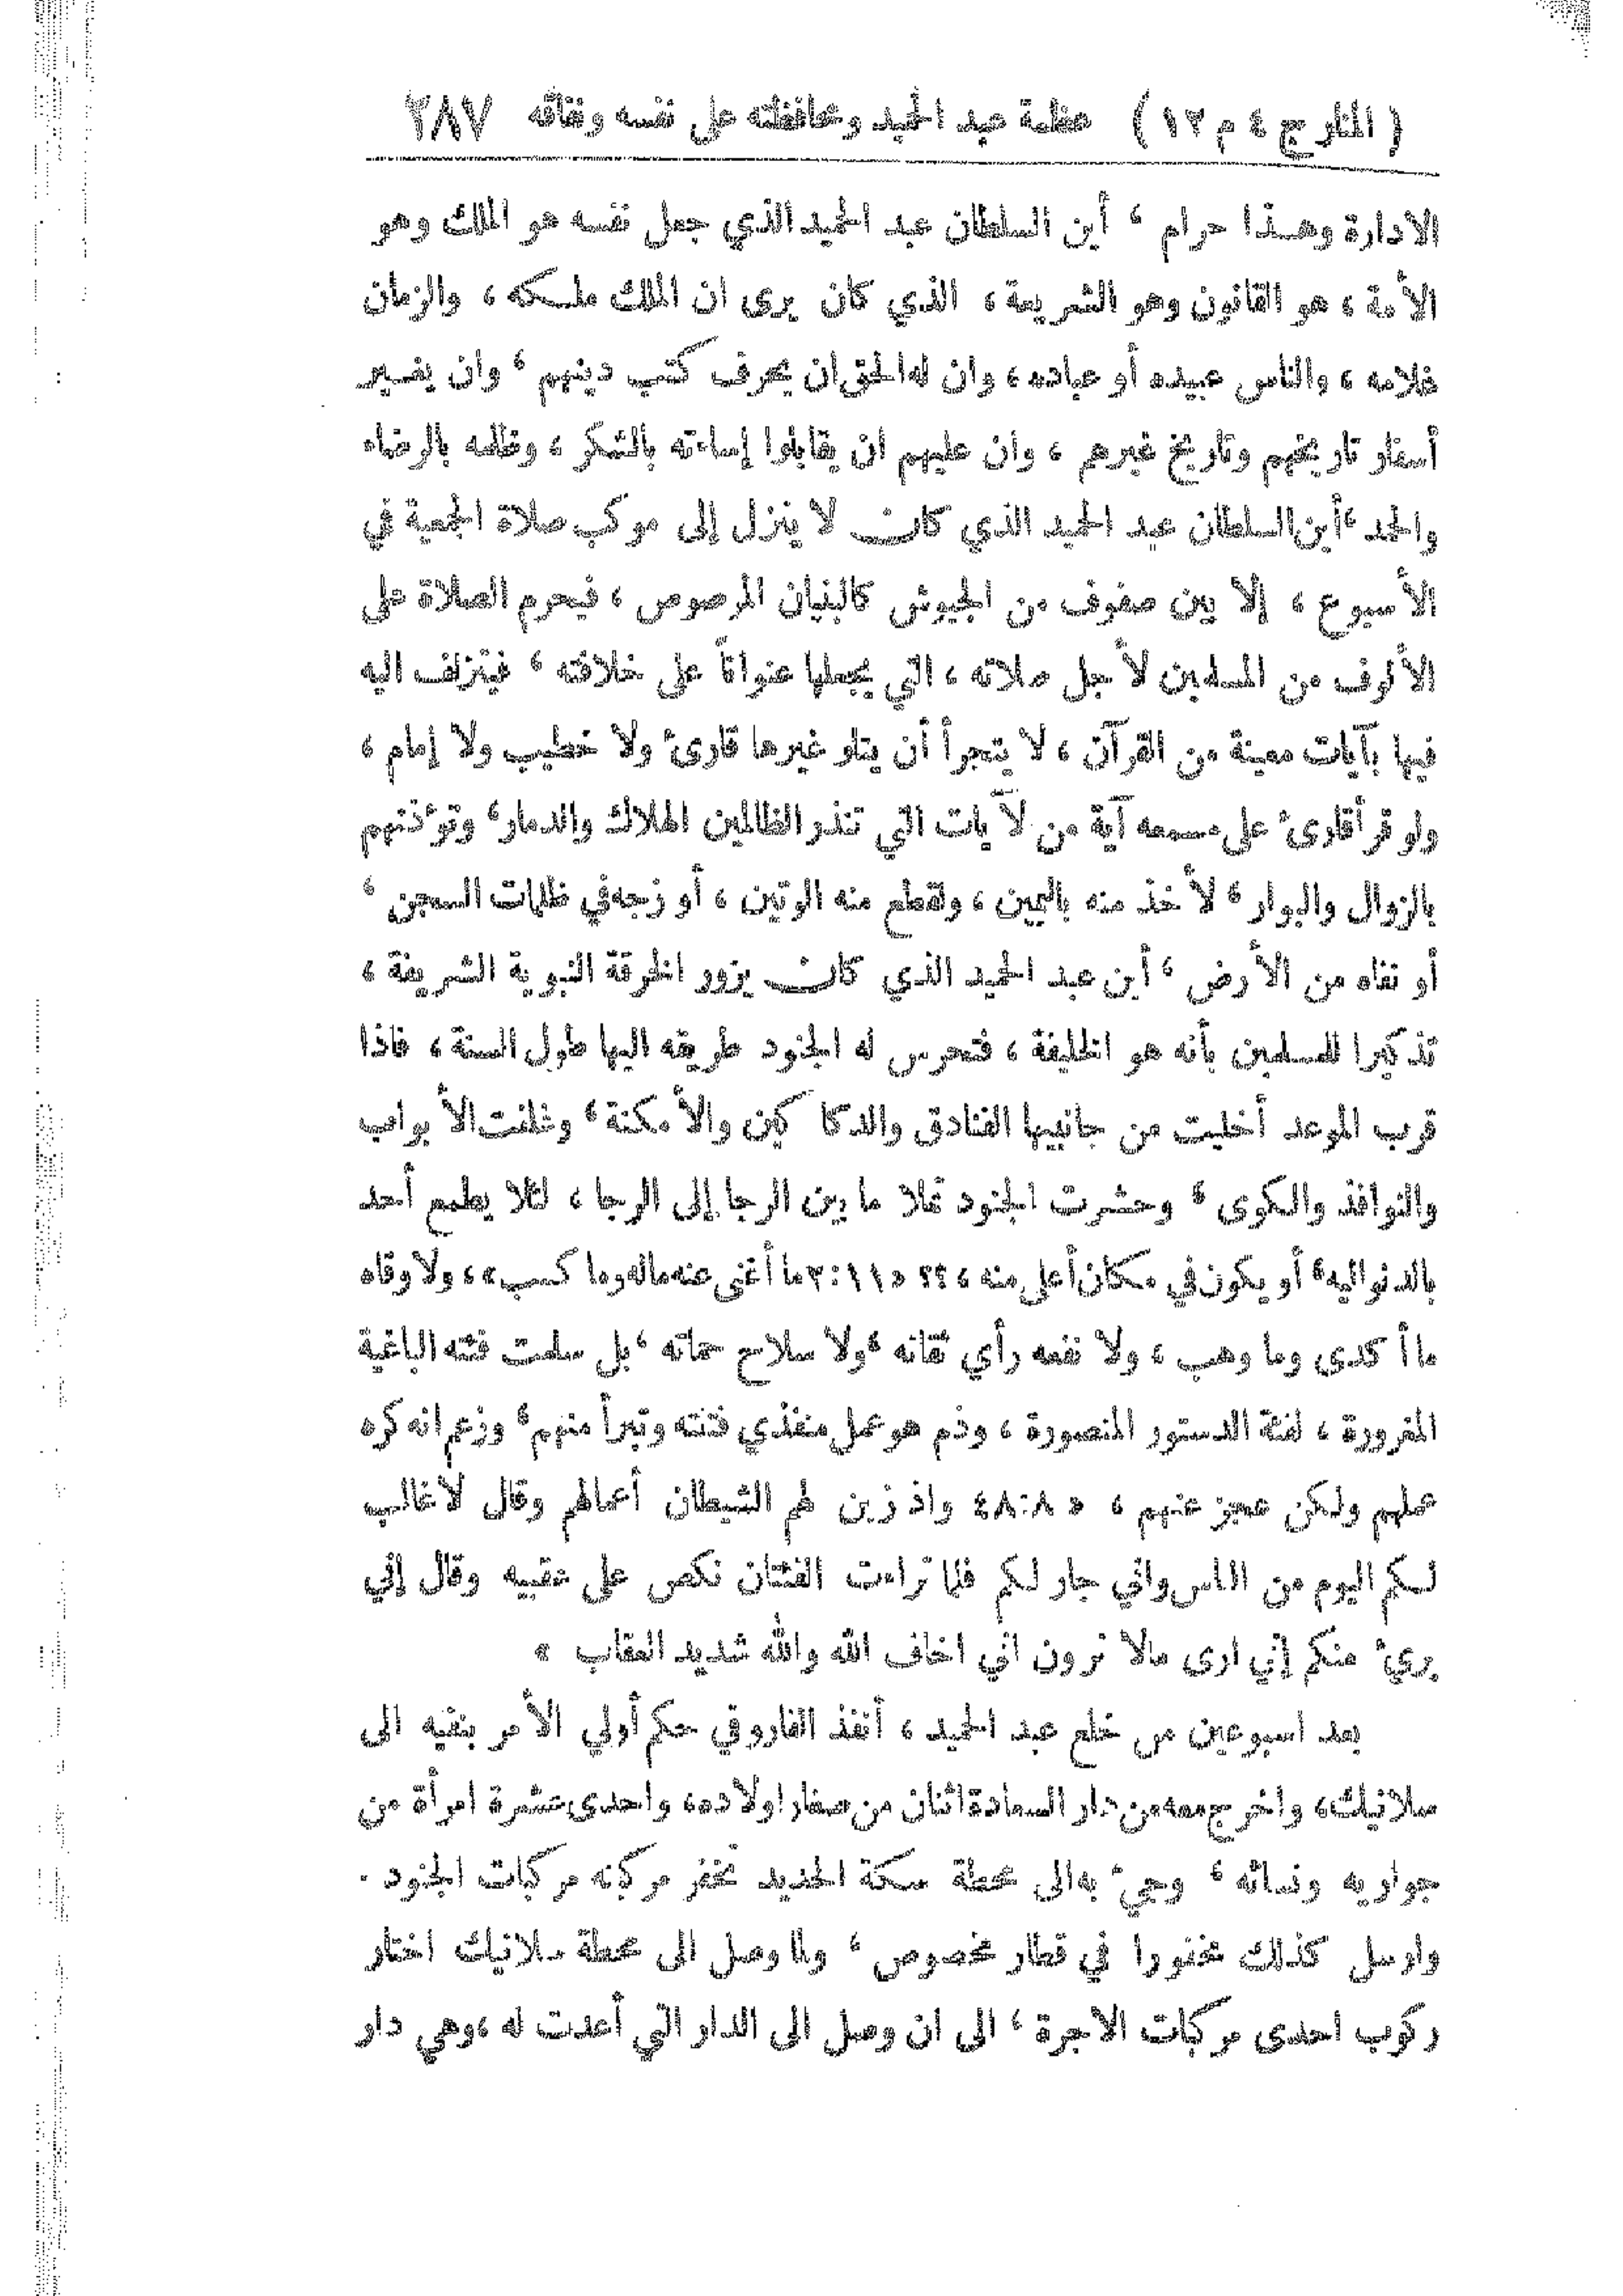 ( المنار ج ٤ م ١٢ ) عظمة عبد الحميد ومحافظته على نفسه ونفاقه ٢٨٧
الادارة وهـذا حرام ، أين السلطان عبد الحميد الذي جعل نفسه هو الملك وهو
الأمة ، هو القانون وهو الشريعة ، الذي كان يرى ان الملك ملـكه ، والزمان
غلامه ، والناس عبيده أو عباده ، وان له الحق ان يحرف كتب دينهم ، وان يغـير
أسفار تاريخهم وتاريخ غيرهم ، وان عليهم ان يقابلوا إساءته بالشكر ، وظلمه بالرضاء
والحمد ، أين السلطان عبد الحميد الذي كان لا ينزل إلى موكب صلاة الجمعة في
الأسبوع ، إلا بين صفوف من الجيوش كالبنيان المرصوص ، فيحرم الصلاة على
الألوف من المسلمين لأجل صلاته ، التي يجعلها عنواناً على خلافته ، فيتزلف اليه
فيها بآيات معينة من القرآن ، لا يتجرأ أن يتلو غيرها قارئ ولا خطيب ولا إمام ،
ولو قرأ قارئ على مسمعه آية من لآيات التي تنذر الظالمين الهلاك والدمار ، وتؤذنهم
بالزوال والبوار ، لأخذ منه باليمين ، ولقطع منه الوتين ، أو زجه في ظلمات السجن ،
أو نفاه من الأرض ، أين عبد الحميد الذي كان يزور الخرقة النبوية الشريفة ،
تذكيرا للمسلمين بأنه هو الخليفة ، فتحرس له الجنود طريقه اليها طول السنة ، فاذا
قرب الموعد أخليت من جانبيها الفنادق والدكاكين والأمكنة ، وغلقت الأبواب
والنوافذ والكوى ، وحشرت الجنود تملا ما بين الرجا إلى الرجا ، لئلا يطمع أحد
بالدنو اليه ، أو يكون في مكان أعلى منه ، ؟؟ « ٢:١١١ ما أغنى عنه ماله وما كسب » ، ولا وقاه
ما أكدى وما وهب ، ولا نفعه رأي ثقاته ، ولا سلاح حماته ، بل سلمت فئته الباغية
المغرورة ، لفئة الدستور المنصورة ، وذم هو عمل منفذي فتنته وتبرأ منهم ، وزعم انه كره
عملهم ولكن عجز عنهم ، « ٤٨:٨ واذ زين لهم الشيطان أعمالهم وقال لا غالب
لـكم اليوم من الناس واني جار لـكم فلما تراءت الفئتان نكص على عقبيه وقال إني
بريء منكم إني ارى مالا ترون اني اخاف الله والله شديد العقاب »
بعد اسبوعين من خلع عبد الحميد ، أنفذ الفاروقي حكم أولي الأمر بنفيه الى
سلانيك ، واخرج معه من دار السعادة اثنان من صغار اولاده ، واحدى عشرة امرأة من
جواريه ونسائه ، وجيء به الى محطة سكة الحديد تخفر مركبته مركبات الجنود .
وارسل كذلك مخفورا في قطار مخصوص ، ولما وصل الى محطة سلانيك اختار
ركوب احدى مركبات الاجرة ، الى ان وصل الى الدار التي أعدت له ، وهي دار